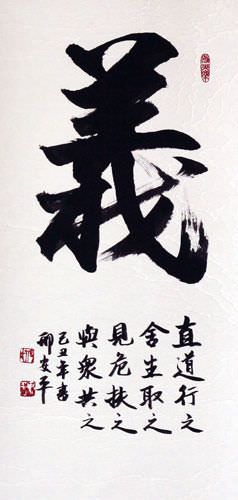 義
直道行之
舍生取之
見危扶之
與衆共之
己丑年書
邢安平